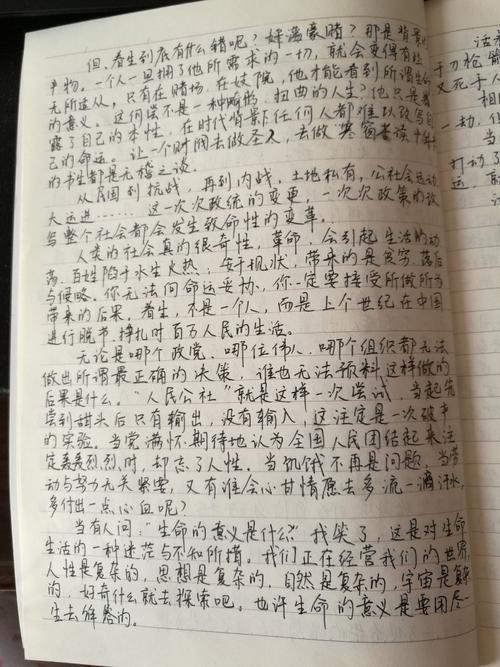 但,看生到底有什么错呢?好淫豪赌?那是背景的
产物。一个人一旦拥了他所需求的一切,就会变得有些
无所适从,只有在赌场,在妓院,他才能看到所谓生命
的意义。这何尝不是一种畸形、扭曲的人生?他只是暴
露了自己的本性,在时代背景下任何人都难以改写自
己的命运。让一个财阀去做圣人,去做寒窗苦读十年
的书生都是无稽之谈。
从民国到抗战,再到内战,土地私有,公社会运动
大运进……这一次次政统的变更,一次次政策的改
写整个社会都会发生致命性的变革。
人类的社会真的很奇怪,革命,会引起生活的动
荡,百姓陷于水生火热,安于现状,带来的是贫穷、落后
与侵略。你无法同命运妥协,你一定要接受所做所为
带来的后果。看生,不是一个人,而是上个世纪在中国
进行脱节、挣扎时百万人民的生活。
无论是哪个政党、哪位伟人、哪个组织都无法
做出所谓最正确的决策,谁也无法预料这样做的
后果是什么。“人民公社”就是这样一次尝试,当起先
尝到甜头后只有输出,没有输入,这注定是一次破产
的实验。当党满怀期待地认为全国人民团结起来注
定轰轰烈烈时,却忘了人性。当饥饿不再是问题,当劳
动与努力无关紧要,又有谁会心甘情愿去多流一滴汗水,
多付出一点心血呢?
当有人问:“生命的意义是什么”我笑了,这是对生命
生活的一种迷茫与不知所措。我们正在经营我们的世界,
人性是复杂的,思想是复杂的,自然是复杂的,宇宙是复杂
的,好奇什么就去探索吧。也许生命的意义是要用尽一
生去解答的。
活着
于刀枪
又死于人
相
一劫,但
当
打动了
运,